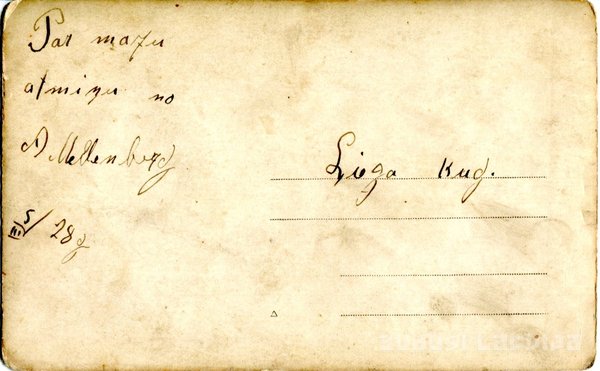 Par mazu
atmiņu no
A Mellenberg
5/III 28g
Liega kug.